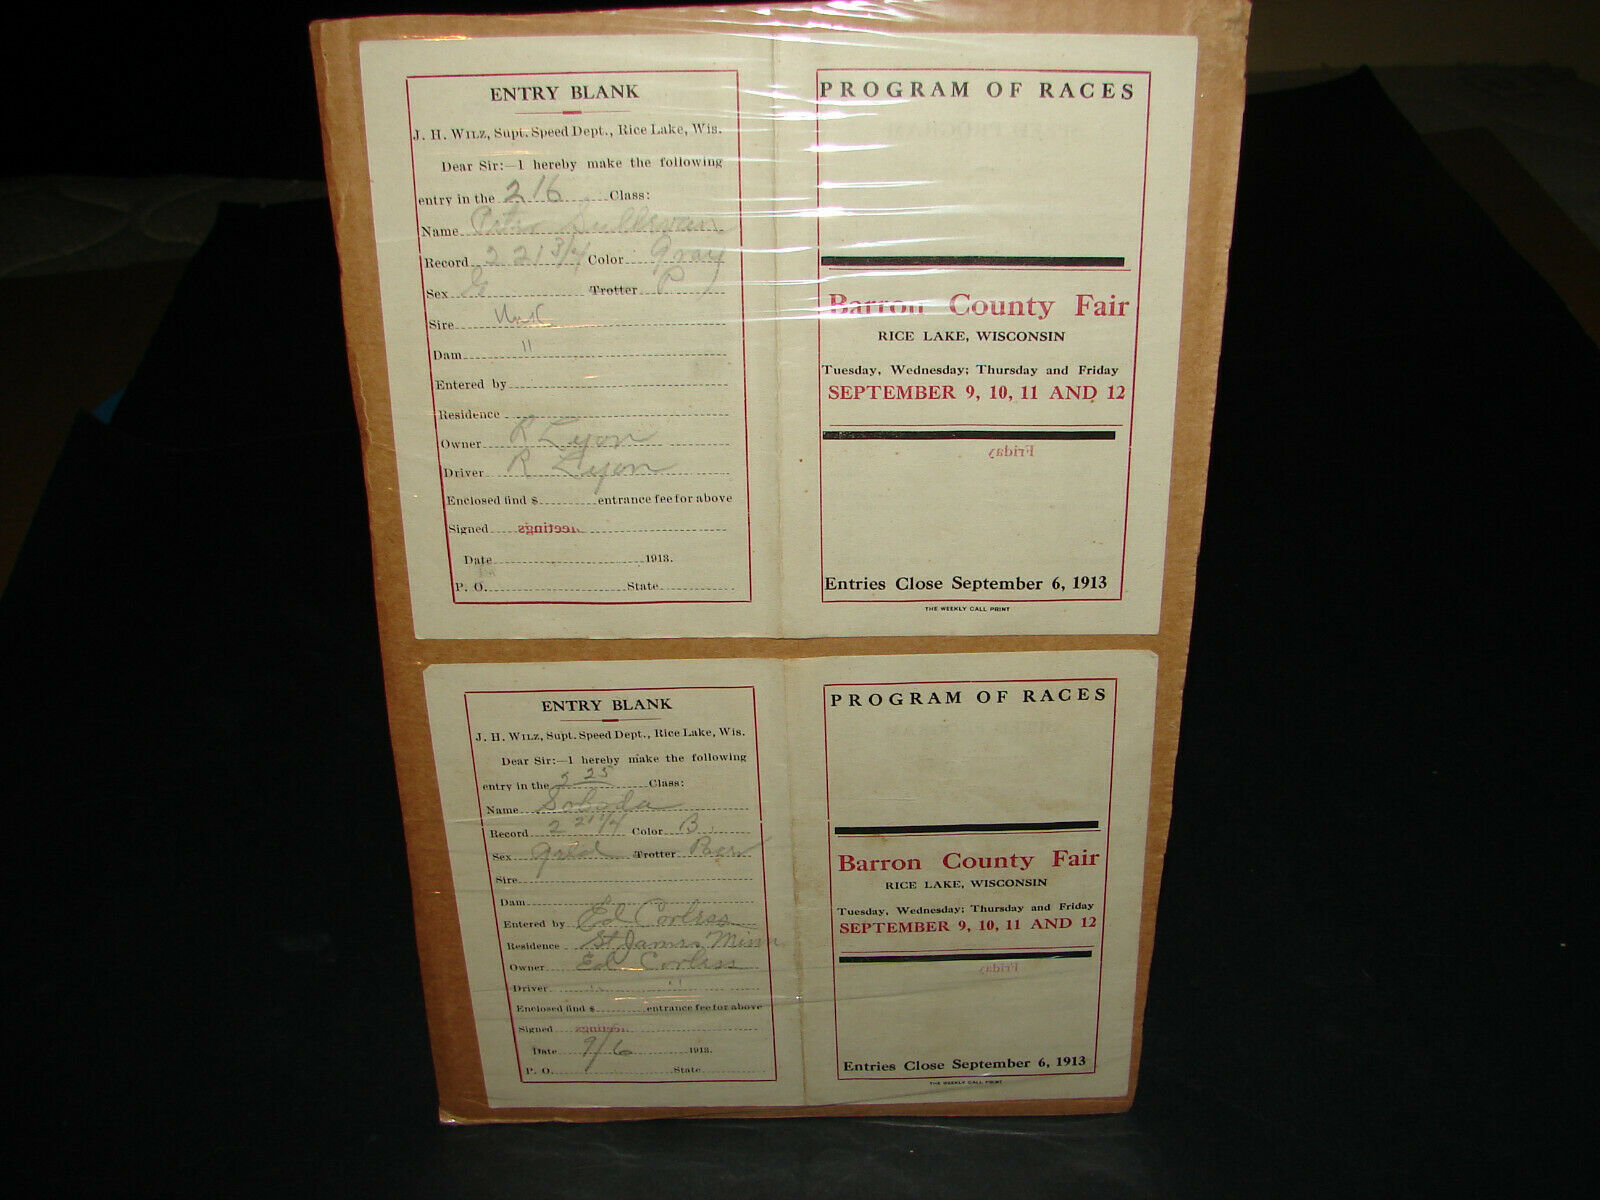 ENTRY BLANK
J. H. WILZ, Supt. Speed Dept., Rice Lake, Wis.
Dear Sir:—I hereby make the following
entry in the 2 16 Class:
Name Peter Sullivan
Record 2 21 3/4 Color Gray
Sex G Trotter P
Sire Unk
Dam "
Entered by
Residence
Owner R Lyon
Driver R Lyon
Enclosed find $ entrance fee for above
Signed
Date 1913.
P. O. State
PROGRAM OF RACES
Barron County Fair
RICE LAKE, WISCONSIN
Tuesday, Wednesday; Thursday and Friday
SEPTEMBER 9, 10, 11 AND 12
Friday
Entries Close September 6, 1913
THE WEEKLY CALL PRINT
ENTRY BLANK
J. H. WILZ, Supt. Speed Dept., Rice Lake, Wis.
Dear Sir:—I hereby make the following
entry in the 2 25 Class:
Name Soboda
Record 2 21 1/4 Color B
Sex Geld Trotter Pacer
Sire
Dam
Entered by Ed Corliss
Residence St James Minn
Owner Ed Corliss
Driver " "
Enclosed find $ entrance fee for above
Signed
Date 9/6 1913.
P. O. State
PROGRAM OF RACES
Barron County Fair
RICE LAKE, WISCONSIN
Tuesday, Wednesday; Thursday and Friday
SEPTEMBER 9, 10, 11 AND 12
Friday
Entries Close September 6, 1913
THE WEEKLY CALL PRINT